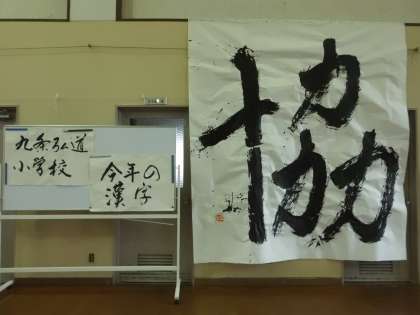 九条弘道
小学校
今年の
漢字
協